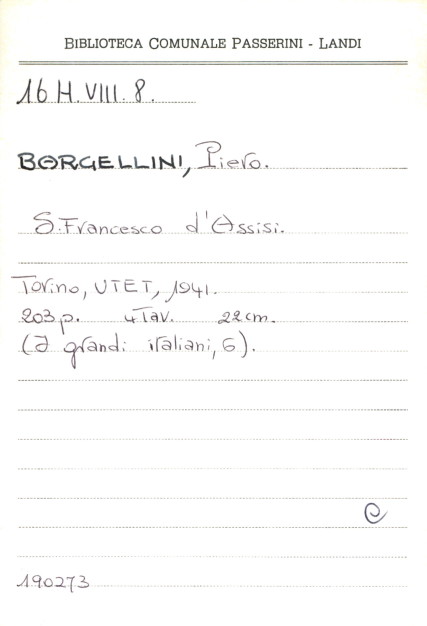 BIBLIOTECA COMUNALE PASSERINI - LANDI
16 H. VIII. 8.
BORGELLINI, Piero.
S. Francesco d'Assisi.
Torino, UTET, 1941.
203 p. 4 Tav. 22 cm.
(I grandi italiani, 6).
e
190273